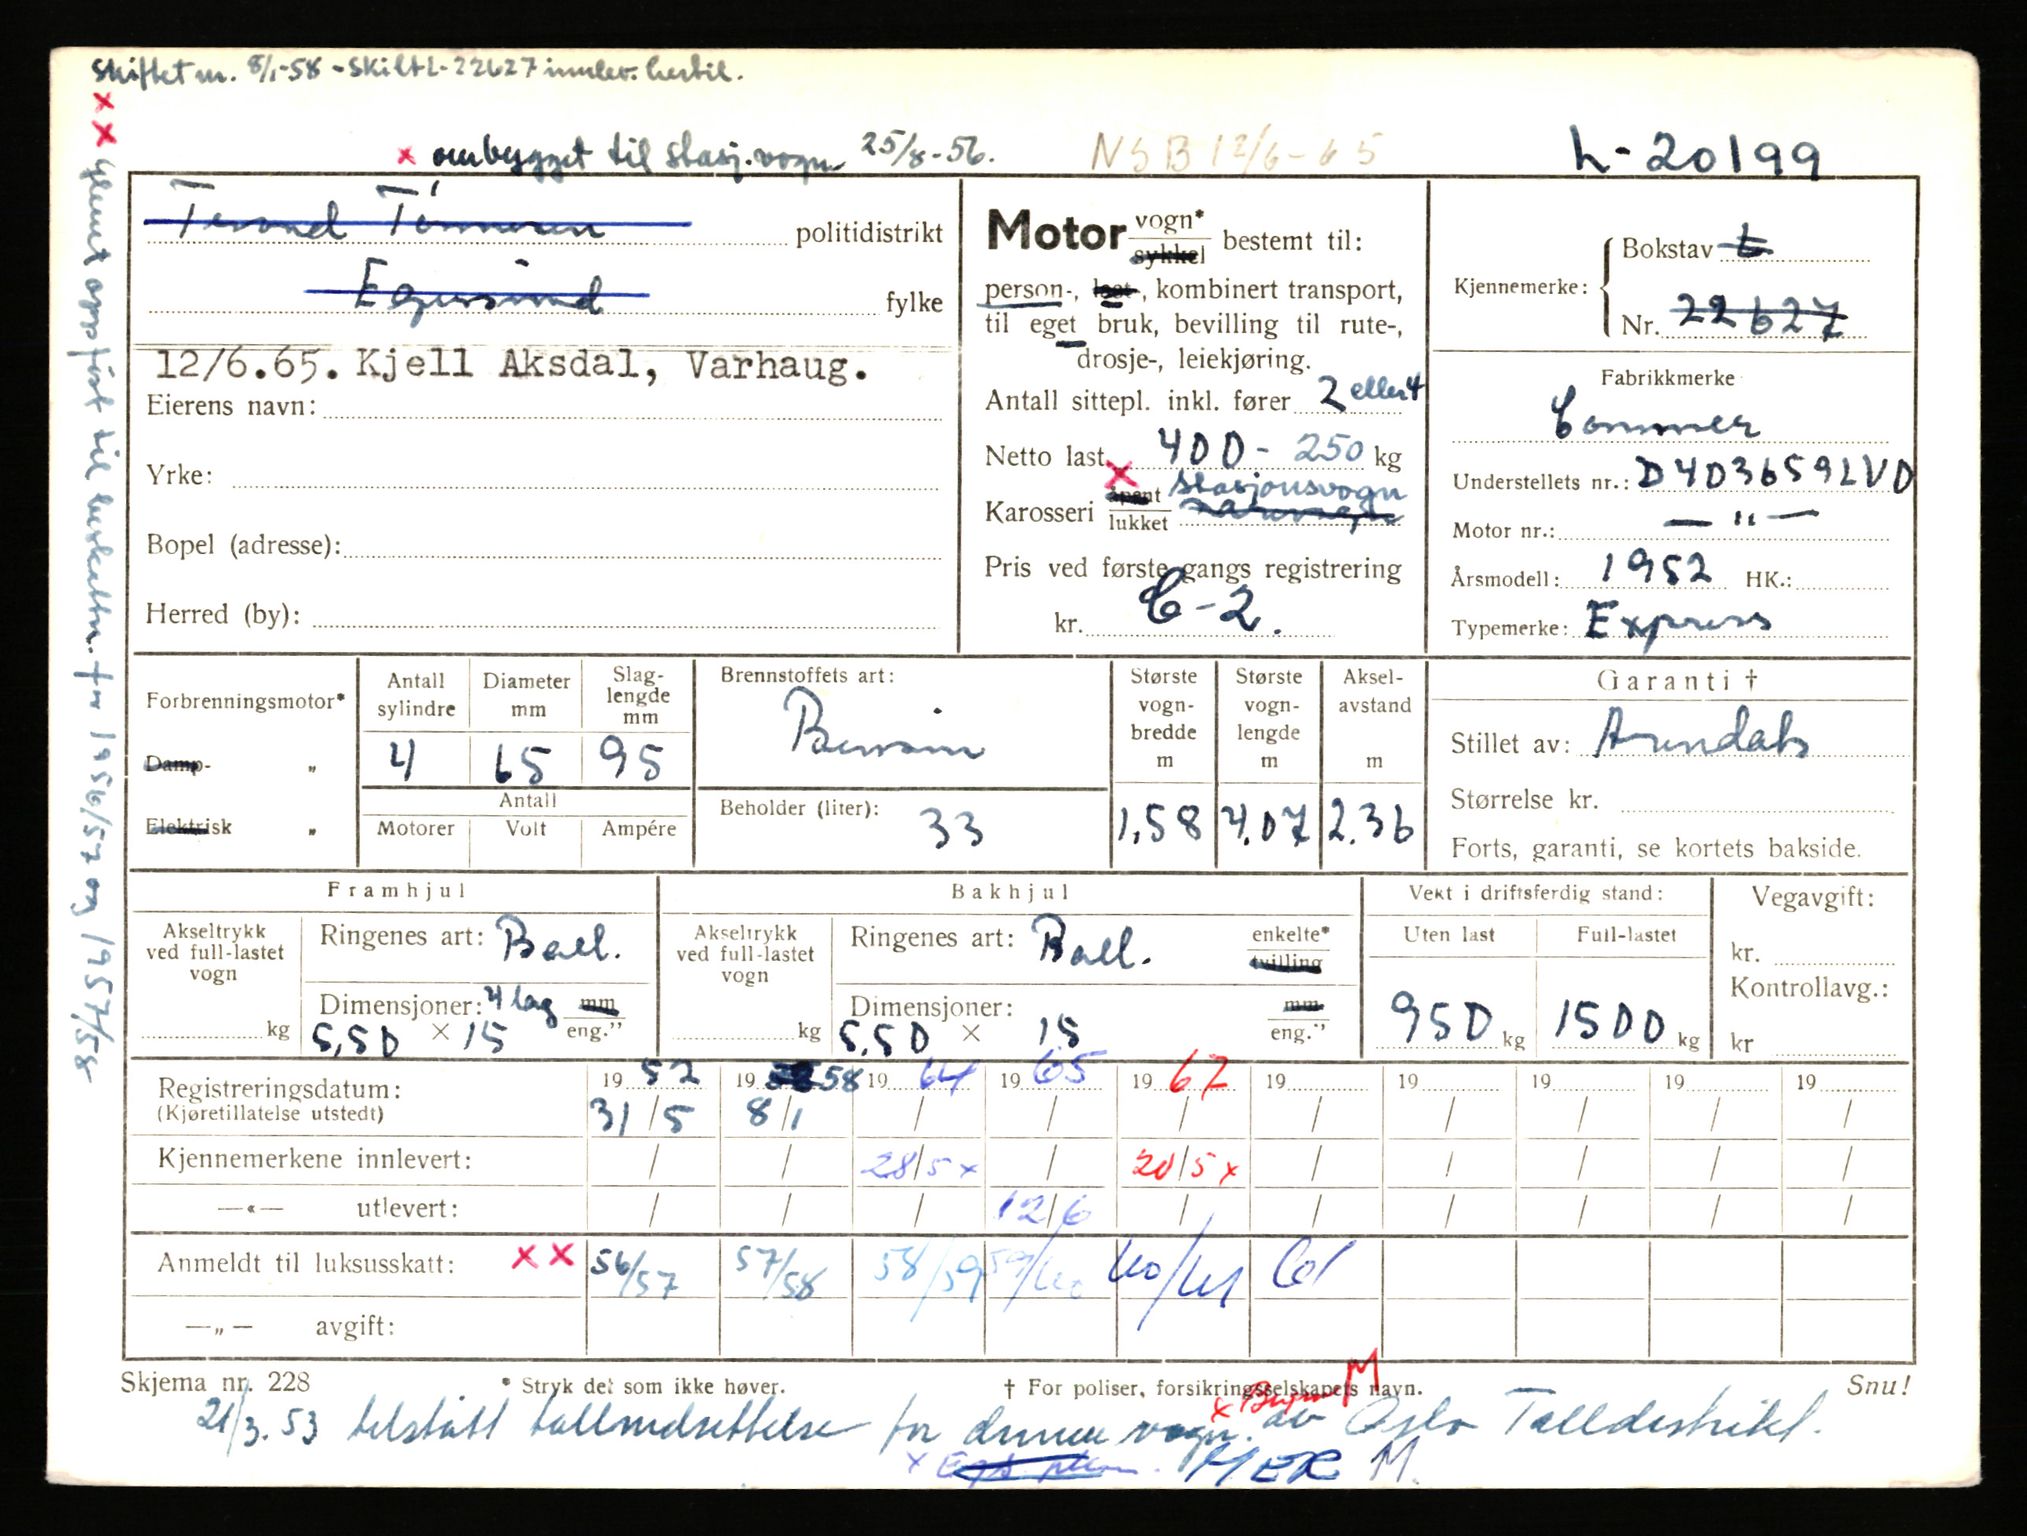 Skiftet nr. 8/1-58 - skilt L-22627 innlev. hertil.
x ombygget til stasj.vogn 25/8-56.
NSB 12/6-65
L-20199
x x Glemt oppført til beskattn. for 1956/57 og 1957/58
politidistrikt
Egersund fylke
12/6.65. Kjell Aksdal, Varhaug.
Eierens navn:
Yrke:
Bopel (adresse):
Herred (by):
Motor vogn* sykkel bestemt til:
person-, last-, kombinert transport,
til eget bruk, bevilling til rute-,
drosje-, leiekjøring.
Antall sittepl. inkl. fører 2 eller 4
Netto last 400 - 250 kg
x
Karosseri åpent lukket stasjonsvogn varevogn
Pris ved første gangs registrering
kr. C-2.
Kjennemerke: Bokstav L
Nr. 22627
Fabrikkmerke
Commer
Understellets nr.: D4D3659LVD
Motor nr.: — " —
Årsmodell: 1952 HK.:
Typemerke: Express
Forbrenningsmotor*
Damp- „
Elektrisk „
Antall sylindre 4
Diameter mm 65
Slag-lengde mm 95
Antall
Motorer Volt Ampére
Brennstoffets art:
Bensin
Beholder (liter): 33
Største vogn-bredde m 1,58
Største vogn-lengde m 4.07
Aksel-avstand m 2.36
Garanti †
Stillet av: Arendals
Størrelse kr.
Forts, garanti, se kortets bakside.
Framhjul
Akseltrykk ved full-lastet vogn kg
Ringenes art: Ball.
Dimensjoner: 4 lag mm eng."
5,50 × 15
Bakhjul
Akseltrykk ved full-lastet vogn kg
Ringenes art: Ball. enkelte* tvilling
Dimensjoner: mm eng."
5,50 × 15
Vekt i driftsferdig stand:
Uten last Full-lastet
950 kg 1500 kg
Vegavgift:
kr.
Kontrollavg.:
kr
Registreringsdatum: 19 52 19 58 19 64 19 65 19 67 19 19 19 19 19
(Kjøretillatelse utstedt) 31/5 8/1 / / / / / / / /
Kjennemerkene innlevert: / / 28/5 x / 20/5 x / / / / /
—«— utlevert: / / / 12/6 / / / / / /
Anmeldt til luksusskatt: x x 56/57 57/58 58/59 59/60 60/61 61
—„— avgift:
Skjema nr. 228 * Stryk det som ikke høver. † For poliser, forsikringsselskapets navn. Snu!
x M
21/3.53 tilstått tollnedsettelse for denne vogn. av Oslo Tolldistrikt.
x HER M.